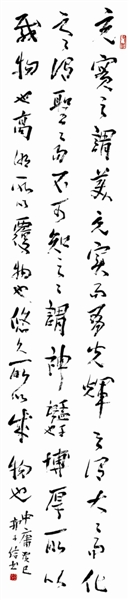 充實之謂美充實而有光輝之謂大大而化
之之謂聖聖而不可知之之謂神博厚所以
載物也高明所以覆物也悠久所以成物也
中庸癸巳